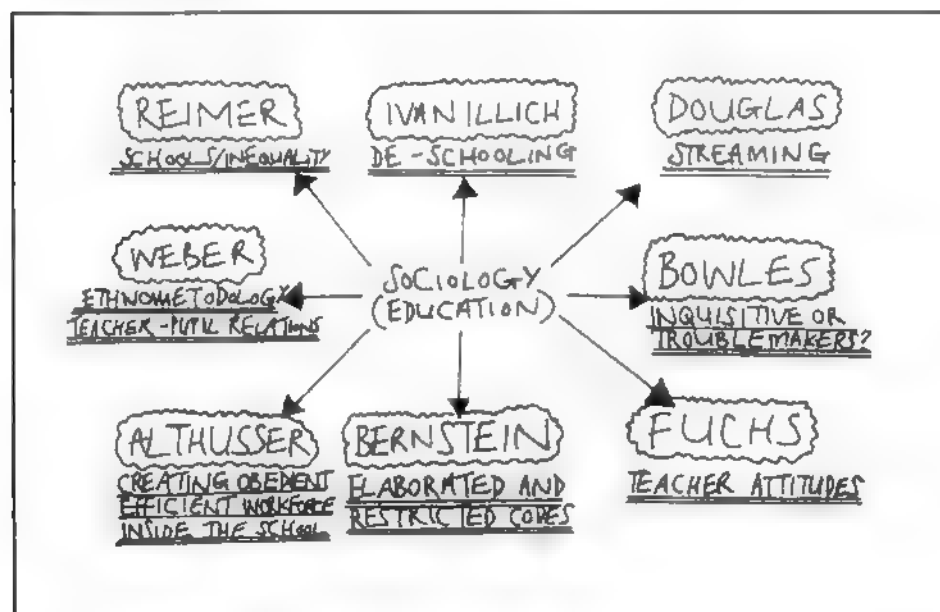 REIMER
SCHOOLS/INEQUALITY
IVAN ILLICH
DE-SCHOOLING
DOUGLAS
STREAMING
WEBER
ETHNOMETODOLOGY
TEACHER-PUPIL RELATIONS
SOCIOLOGY
(EDUCATION)
BOWLES
INQUISITIVE OR
TROUBLEMAKERS?
ALTHUSSER
CREATING OBEDIENT
EFFICIENT WORKFORCE
INSIDE THE SCHOOL
BERNSTEIN
ELABORATED AND
RESTRICTED CODES
FUCHS
TEACHER ATTITUDES